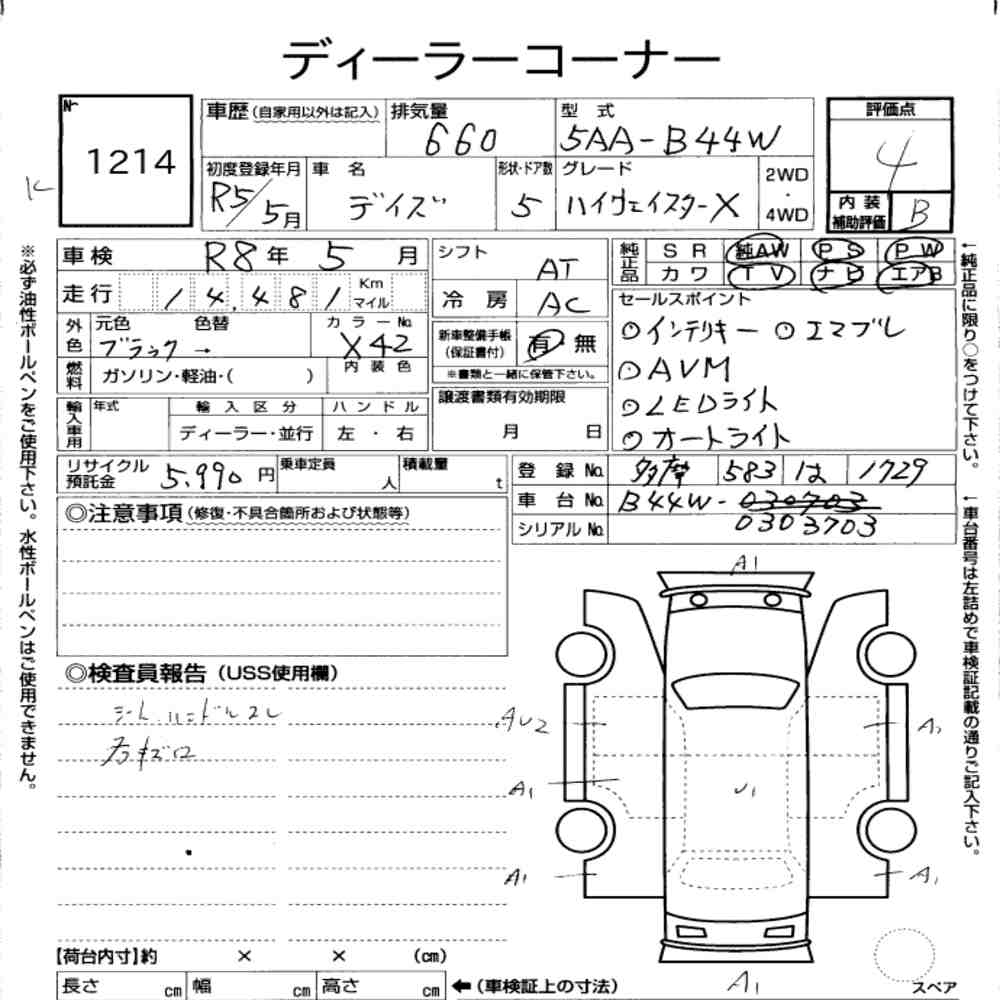 ディーラーコーナー
№
1214
車歴 (自家用以外は記入)
排気量
660
型式
5AA-B44W
評価点
4
初度登録年月
R5/5月
車名
デイズ
形状・ドア数
5
グレード
ハイウェイスターX
2WD
・
4WD
内装
補助評価
B
車検
R8年 5月
シフト
AT
純正品
SR 純AW PS PW
カワ TV ナビ エアB
走行
14,481
Km
マイル
冷房
AC
セールスポイント
○インテリキー ○エマブレ
○AVM
○LEDライト
○オートライト
外色
元色 色替
ブラック→
カラーNo.
X42
新車整備手帳
(保証書付)
有・無
※書類と一緒に保管下さい。
燃料
ガソリン・軽油・( )
内装色
譲渡書類有効期限
月 日
輸入車用
年式
輸入区分
ディーラー・並行
ハンドル
左・右
リサイクル
預託金
5,990円
乗車定員
人
積載量
t
登録No.
多摩 583 は 1729
車台No.
B44W-030703
シリアルNo.
0303703
◎注意事項 (修復・不具合箇所および状態等)
◎検査員報告 (USS使用欄)
シート、ハンドルスレ
A1
AU2
A2
A1
U1
A1
A1
A1
【荷台内寸】約 × × (cm)
長さ cm
幅 cm
高さ cm
←(車検証上の寸法)
スペア
※必ず油性ボールペンをご使用下さい。水性ボールペンはご使用できません。
←純正品に限り○をつけて下さい。
←車台番号は左詰めで車検証記載の通りご記入下さい。